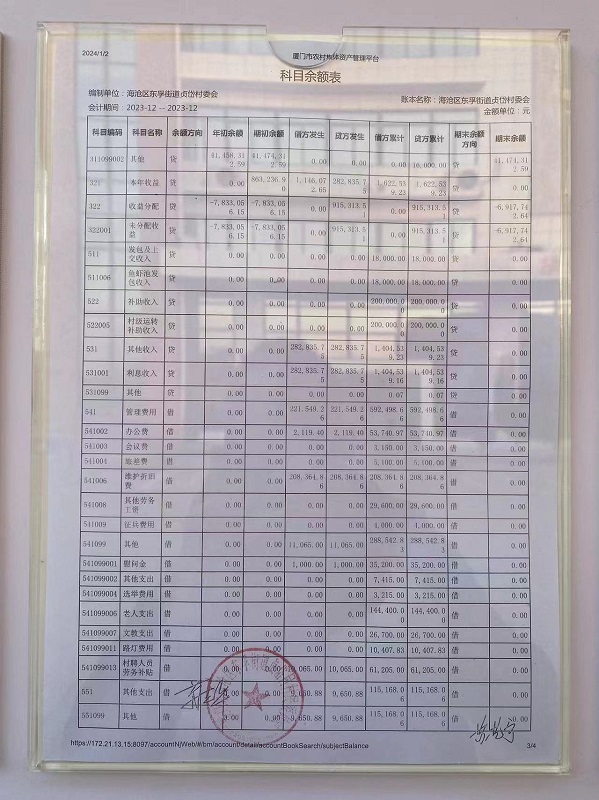 2024/1/2 厦门市农村集体资产管理平台
科目余额表
编制单位：海沧区东孚街道贞岱村委会 账本名称：海沧区东孚街道贞岱村委会
会计期间：2023-12 -- 2023-12 金额单位：元
科目编码 科目名称 余额方向 年初余额 期初余额 借方发生 贷方发生 借方累计 贷方累计 期末余额方向 期末余额
311099002 其他 贷 41,458,312.59 41,474,312.59 0.00 0.00 0.00 16,000.00 贷 41,474,312.59
321 本年收益 贷 0.00 863,236.90 1,146,072.65 282,835.75 1,622,539.23 1,622,539.23 贷 0.00
322 收益分配 贷 -7,833,056.15 -7,833,056.15 0.00 915,313.51 0.00 915,313.51 贷 -6,917,742.64
322001 未分配收益 贷 -7,833,056.15 -7,833,056.15 0.00 915,313.51 0.00 915,313.51 贷 -6,917,742.64
511 发包及上交收入 贷 0.00 0.00 0.00 0.00 18,000.00 18,000.00 贷 0.00
511006 鱼虾池发包收入 贷 0.00 0.00 0.00 0.00 18,000.00 18,000.00 贷 0.00
522 补助收入 贷 0.00 0.00 0.00 0.00 200,000.00 200,000.00 贷 0.00
522005 村级运转补助收入 贷 0.00 0.00 0.00 0.00 200,000.00 200,000.00 贷 0.00
531 其他收入 贷 0.00 0.00 282,835.75 282,835.75 1,404,539.23 1,404,539.23 贷 0.00
531001 利息收入 贷 0.00 0.00 282,835.75 282,835.75 1,404,539.16 1,404,539.16 贷 0.00
531099 其他 贷 0.00 0.00 0.00 0.00 0.07 0.07 贷 0.00
541 管理费用 借 0.00 0.00 221,549.26 221,549.26 592,498.66 592,498.66 借 0.00
541002 办公费 借 0.00 0.00 2,119.40 2,119.40 53,740.97 53,740.97 借 0.00
541003 会议费 借 0.00 0.00 0.00 0.00 3,150.00 3,150.00 借 0.00
541004 旅差费 借 0.00 0.00 0.00 0.00 5,100.00 5,100.00 借 0.00
541006 维护折旧费 借 0.00 0.00 208,364.86 208,364.86 208,364.86 208,364.86 借 0.00
541008 其他劳务工资 借 0.00 0.00 0.00 0.00 29,600.00 29,600.00 借 0.00
541009 征兵费用 借 0.00 0.00 0.00 0.00 4,000.00 4,000.00 借 0.00
541099 其他 借 0.00 0.00 11,065.00 11,065.00 288,542.83 288,542.83 借 0.00
541099001 慰问金 借 0.00 0.00 1,000.00 1,000.00 35,200.00 35,200.00 借 0.00
541099002 其他支出 借 0.00 0.00 0.00 0.00 7,415.00 7,415.00 借 0.00
541099004 选举费用 借 0.00 0.00 0.00 0.00 3,215.00 3,215.00 借 0.00
541099006 老人支出 借 0.00 0.00 0.00 0.00 144,400.00 144,400.00 借 0.00
541099007 文教支出 借 0.00 0.00 0.00 0.00 26,700.00 26,700.00 借 0.00
541099011 路灯费用 借 0.00 0.00 0.00 0.00 10,407.83 10,407.83 借 0.00
541099013 村聘人员劳务补贴 借 0.00 0.00 10,065.00 10,065.00 61,205.00 61,205.00 借 0.00
551 其他支出 借 0.00 0.00 9,650.88 9,650.88 115,168.06 115,168.06 借 0.00
551099 其他 借 0.00 0.00 9,650.88 9,650.88 115,168.06 115,168.06 借 0.00
https://172.21.13.15:8097/accountNjWeb/#/bm/account/detail/accountBookSearch/subjectBalance 3/4